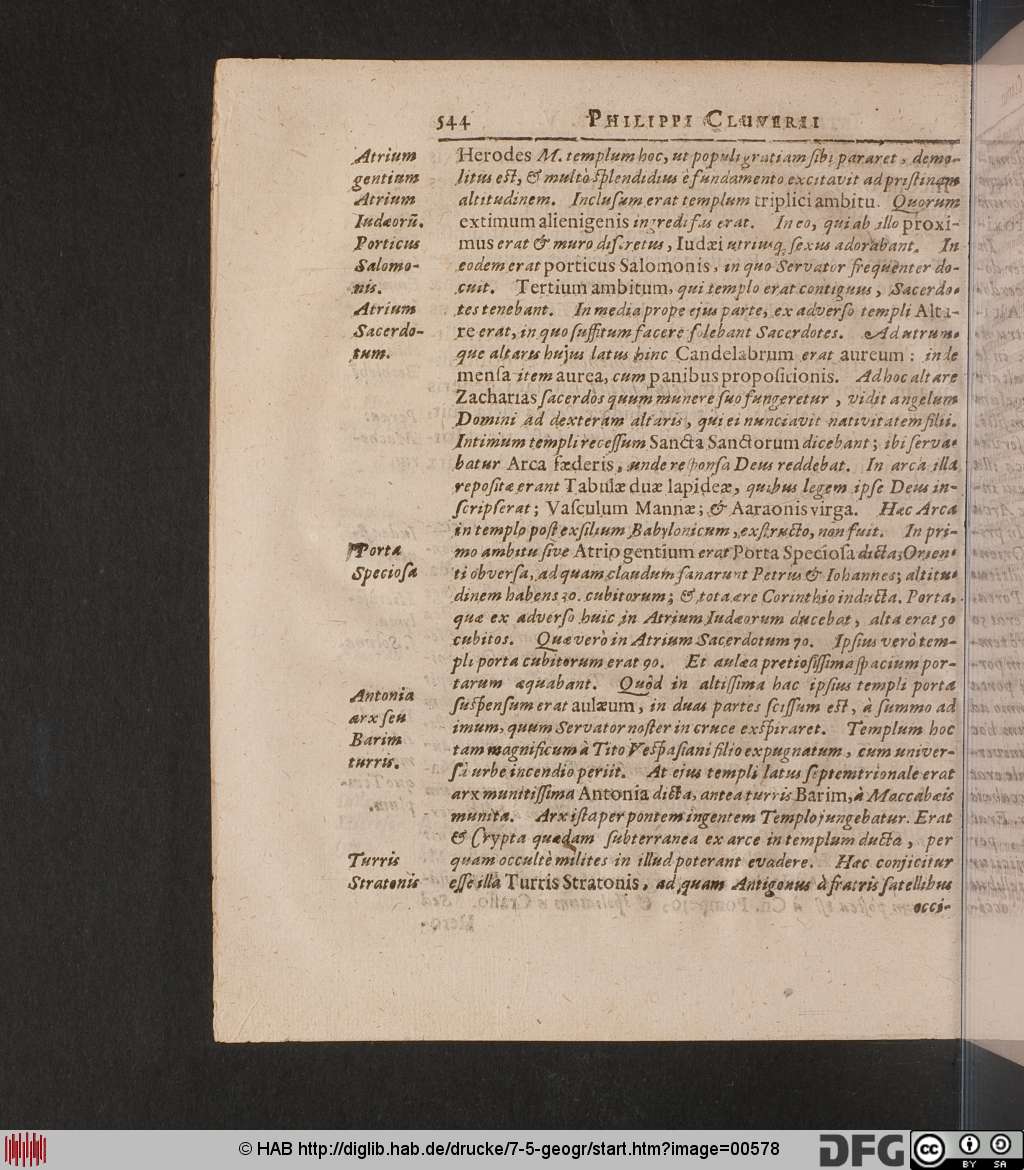 544 PHILIPPI CLUVERII
Atrium
gentium
Atrium
Iudæorũ.
Porticus
Salomo-
nis.
Atrium
Sacerdo-
tum.
Porta
Speciosa
Antonia
arx seu
Barim
turris.
Turris
Stratonis
Herodes M. templum hoc, ut populi gratiam sibi pararet, demo-
litus est, & multò splendidius è fundamento excitavit ad pristinam
altitudinem. Inclusum erat templum triplici ambitu. Quorum
extimum alienigenis ingredi fas erat. In eo, qui ab illo proxi-
mus erat & muro discretus, Iudæi utriusq; sexus adorabant. In
eodem erat porticus Salomonis, in quo Servator frequenter do-
cuit. Tertium ambitum, qui templo erat contiguus, Sacerdo-
tes tenebant. In media prope ejus parte, ex adverso templi Alta-
re erat, in quo suffitum facere solebant Sacerdotes. Ad utrum-
que altaris hujus latus hinc Candelabrum erat aureum: inde
mensa item aurea, cum panibus propositionis. Ad hoc altare
Zacharias sacerdos quum munere suo fungeretur, vidit angelum
Domini ad dexteram altaris, qui ei nunciavit nativitatem filii.
Intimum templi recessum Sancta Sanctorum dicebant; ibi serva-
batur Arca fæderis, unde responsa Deus reddebat. In arca illa
repositæ erant Tabulæ duæ lapideæ, quibus legem ipse Deus in-
scripserat; Vasculum Mannæ; & Aaraonis virga. Hæc Arca
in templo post exsilium Babylonicum, exstructo, non fuit. In pri-
mo ambitu sive Atrio gentium erat Porta Speciosa dicta, Orien-
ti obversa, ad quam claudum sanarunt Petrus & Iohannes; altitu-
dinem habens 30. cubitorum; & tota ære Corinthio inducta. Porta,
quæ ex adverso huic in Atrium Iudæorum ducebat, alta erat 50
cubitos. Quæ verò in Atrium Sacerdotum 70. Ipsius verò tem-
pli porta cubitorum erat 90. Et aulæa pretiosissima spacium por-
tarum æquabant. Quòd in altissima hac ipsius templi porta
suspensum erat aulæum, in duas partes scissum est, à summo ad
imum, quum Servator noster in cruce exspiraret. Templum hoc
tam magnificum à Tito Vespasiani filio expugnatum, cum univer-
sâ urbe incendio periit. At ejus templi latus septemtrionale erat
arx munitissima Antonia dicta, antea turris Barim, à Maccabæis
munita. Arx ista per pontem ingentem Templo jungebatur. Erat
& Crypta quædam subterranea ex arce in templum ducta, per
quam occultè milites in illud poterant evadere. Hæc conjicitur
esse illa Turris Stratonis, ad quam Antigonus à fratris satellibus
occi-
© HAB http://diglib.hab.de/drucke/7-5-geogr/start.htm?image=00578
DFG
cc
BY SA